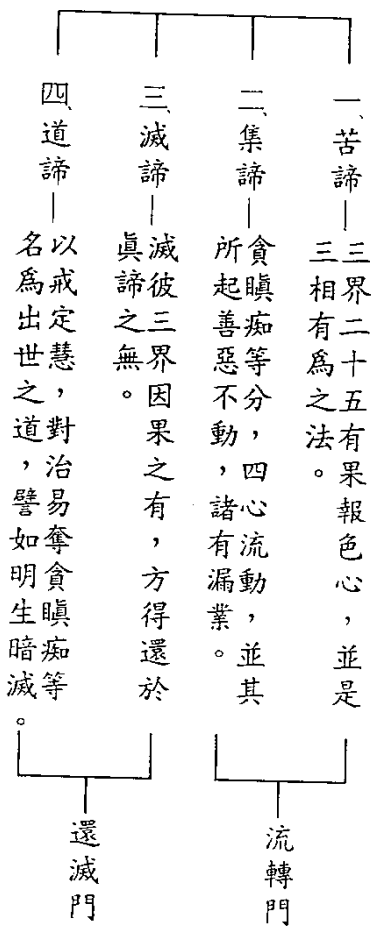 一、苦諦
三界二十五有果報色心，並是
三相有為之法。
二、集諦
貪瞋痴等分，四心流動，並其
所起善惡不動，諸有漏業。
三、滅諦
滅彼三界因果之有，方得還於
眞諦之無。
四、道諦
以戒定慧，對治易奪貪瞋痴等
名為出世之道，譬如明生暗滅。
流轉門
還滅門